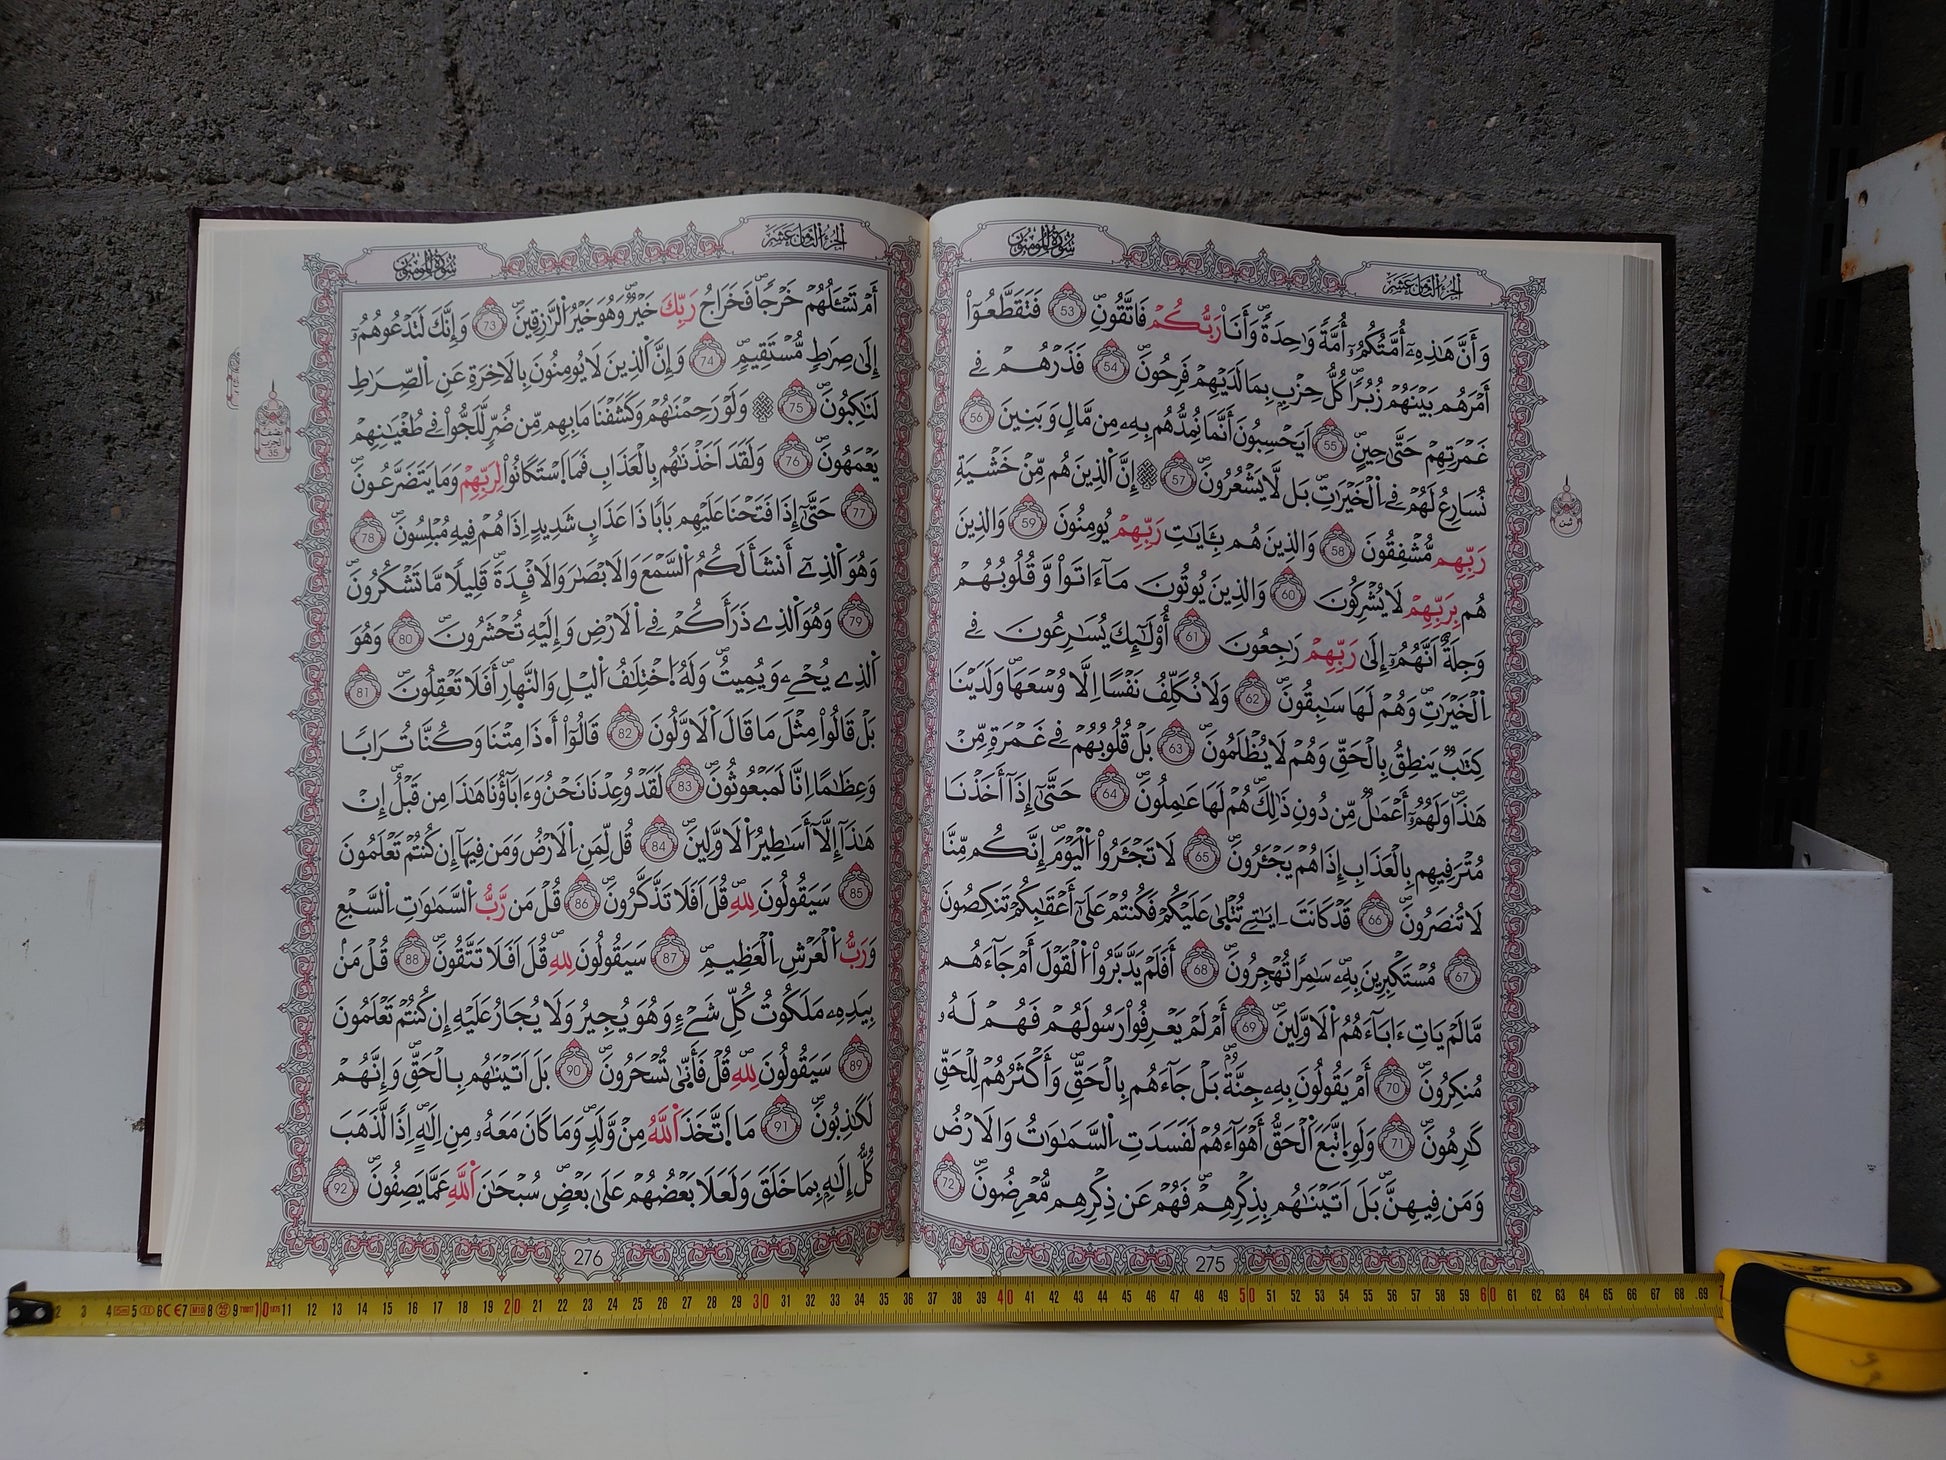 الجزء الثامن عشر
سورة المومنون
وَأَنَّ هَٰذِهِۦٓ أُمَّتُكُمُۥٓ أُمَّةٗ وَٰحِدَةٗ وَأَنَا۠ رَبُّكُمْ فَاتَّقُونِۖ 53 فَتَقَطَّعُوٓاْ
أَمْرَهُم بَيْنَهُمْ زُبُراٗ كُلُّ حِزْبِۢ بِمَا لَدَيْهِمْ فَرِحُونَۖ 54 فَذَرْهُمْ فِے
غَمْرَتِهِمْ حَتَّيٰ حِينٍۖ 55 اَيَحْسِبُونَ أَنَّمَا نُمِدُّهُم بِهِۦ مِن مَّالٖ وَبَنِينَ 56
نُسَارِعُ لَهُمْ فِے اِ۬لْخَيْرَٰتِۖ بَل لَّا يَشْعُرُونَۖ 57 إِنَّ اَ۬لذِينَ هُم مِّنْ خَشْيَةِ
رَبِّهِم مُّشْفِقُونَ 58 وَالذِينَ هُم بِـَٔايَٰتِ رَبِّهِمْ يُومِنُونَ 59 وَالذِينَ
هُم بِرَبِّهِمْ لَا يُشْرِكُونَ 60 وَالذِينَ يُوتُونَ مَآ ءَاتَواْ وَّقُلُوبُهُمْ
وَجِلَةٌ اَنَّهُمُۥٓ إِلَيٰ رَبِّهِمْ رَٰجِعُونَ 61 أُوْلَٰٓئِكَ يُسَٰرِعُونَ فِے
اِ۬لْخَيْرَٰتِۖ وَهُمْ لَهَا سَٰبِقُونَۖ 62 وَلَا نُكَلِّفُ نَفْساً اِلَّا وُسْعَهَاۖ وَلَدَيْنَا
كِتَٰبٞ يَنطِقُ بِالْحَقِّ وَهُمْ لَا يُظْلَمُونَۖ 63 بَلْ قُلُوبُهُمْ فِے غَمْرَةٖ مِّنْ
هَٰذَاۖ وَلَهُمُۥٓ أَعْمَٰلٞ مِّن دُونِ ذَٰلِكَۖ هُمْ لَهَا عَٰمِلُونَۖ 64 حَتَّيٰٓ إِذَآ أَخَذْنَا
مُتْرَفِيهِم بِالْعَذَابِ إِذَا هُمْ يَجْـَٔرُونَۖ 65 لَا تَجْـَٔرُواْ اُ۬لْيَوْمَۖ إِنَّكُم مِّنَّا
لَا تُنصَرُونَۖ 66 قَدْ كَانَتَ اٰيَٰتِے تُتْلَيٰ عَلَيْكُمْ فَكُنتُمْ عَلَيٰٓ أَعْقَٰبِكُمْ تَنكِصُونَ
67 مُسْتَكْبِرِينَ بِهِۦۖ سَٰمِراٗ تُهْجِرُونَۖ 68 أَفَلَمْ يَدَّبَّرُواْ اُ۬لْقَوْلَ أَمْ جَآءَهُم
مَّا لَمْ يَاتِ ءَابَآءَهُمُ اُ۬لَاوَّلِينَۖ 69 أَمْ لَمْ يَعْرِفُواْ رَسُولَهُمْ فَهُمْ لَهُۥ
مُنكِرُونَۖ 70 أَمْ يَقُولُونَ بِهِۦ جِنَّةُۢۖ بَلْ جَآءَهُم بِالْحَقِّۖ وَأَكْثَرُهُمْ لِلْحَقِّ
كَٰرِهُونَۖ 71 وَلَوِ اِ۪تَّبَعَ اَ۬لْحَقُّ أَهْوَآءَهُمْ لَفَسَدَتِ اِ۬لسَّمَٰوَٰتُ وَالَارْضُ
وَمَن فِيهِنَّۖ بَلَ اَتَيْنَٰهُم بِذِكْرِهِمْۖ فَهُمْ عَن ذِكْرِهِم مُّعْرِضُونَۖ 72
ثمن
275
الجزء الثامن عشر
سورة المومنون
أَمْ تَسْـَٔلُهُمْ خَرْجاٗۖ فَخَرَاجُ رَبِّكَ خَيْرٞۖ وَهُوَ خَيْرُ اُ۬لرَّٰزِقِينَۖ 73 وَإِنَّكَ لَتَدْعُوهُمُۥٓ
إِلَيٰ صِرَٰطٖ مُّسْتَقِيمٖۖ 74 وَإِنَّ اَ۬لذِينَ لَا يُومِنُونَ بِالَاخِرَةِ عَنِ اِ۬لصِّرَٰطِ
لَنَٰكِبُونَۖ 75 وَلَوْ رَحِمْنَٰهُمْ وَكَشَفْنَا مَا بِهِم مِّن ضُرّٖ لَّلَجُّواْ فِے طُغْيَٰنِهِمْ
يَعْمَهُونَۖ 76 وَلَقَدَ اَخَذْنَٰهُم بِالْعَذَابِ فَمَا اَ۪سْتَكَانُواْ لِرَبِّهِمْ وَمَا يَتَضَرَّعُونَۖ
77 حَتَّيٰٓ إِذَا فَتَحْنَا عَلَيْهِم بَاباٗ ذَا عَذَابٖ شَدِيدٍ اِذَا هُمْ فِيهِ مُبْلِسُونَۖ 78
وَهُوَ اَ۬لذِےٓ أَنشَأَ لَكُمُ اُ۬لسَّمْعَ وَالَابْصَٰرَ وَالَافْـِٕدَةَۖ قَلِيلاٗ مَّا تَشْكُرُونَۖ
79 وَهُوَ اَ۬لذِے ذَرَأَكُمْ فِے اِ۬لَارْضِ وَإِلَيْهِ تُحْشَرُونَۖ 80 وَهُوَ
اَ۬لذِے يُحْيِۦ وَيُمِيتُۖ وَلَهُ اُ۪خْتِلَٰفُ اُ۬ليْلِ وَالنَّه۪ارِۖ أَفَلَا تَعْقِلُونَۖ 81
بَلْ قَالُواْ مِثْلَ مَا قَالَ اَ۬لَاوَّلُونَ 82 قَالُوٓاْ أَ•ذَا مِتْنَا وَكُنَّا تُرَاباٗ
وَعِظَٰماً اِنَّا لَمَبْعُوثُونَۖ 83 لَقَدْ وُعِدْنَا نَحْنُ وَءَابَآؤُنَا هَٰذَا مِن قَبْلُۖ إِنْ
هَٰذَآ إِلَّآ أَسَٰطِيرُ اُ۬لَاوَّلِينَۖ 84 قُل لِّمَنِ اِ۬لَارْضُ وَمَن فِيهَآ إِن كُنتُمْ تَعْلَمُونَ
85 سَيَقُولُونَ لِلهِۖ قُلَ اَفَلَا تَذَّكَّرُونَۖ 86 قُلْ مَن رَّبُّ اُ۬لسَّمَٰوَٰتِ اِ۬لسَّبْعِ
وَرَبُّ اُ۬لْعَرْشِ اِ۬لْعَظِيمِۖ 87 سَيَقُولُونَ لِلهِۖ قُلَ اَفَلَا تَتَّقُونَۖ 88 قُلْ مَنۢ
بِيَدِهِۦ مَلَكُوتُ كُلِّ شَےْءٖ وَهُوَ يُجِيرُ وَلَا يُجَارُ عَلَيْهِ إِن كُنتُمْ تَعْلَمُونَ
89 سَيَقُولُونَ لِلهِۖ قُلْ فَأَنّ۪يٰ تُسْحَرُونَۖ 90 بَلَ اَتَيْنَٰهُم بِالْحَقِّۖ وَإِنَّهُمْ
لَكَٰذِبُونَۖ 91 مَا اَ۪تَّخَذَ اَ۬للَّهُ مِنْ وَّلَدٖۖ وَمَا كَانَ مَعَهُۥ مِنِ اِلَٰهٍۖ اِذاٗ لَّذَهَبَ
كُلُّ إِلَٰهِۢ بِمَا خَلَقَ وَلَعَلَا بَعْضُهُمْ عَلَيٰ بَعْضٖۖ سُبْحَٰنَ اَ۬للَّهِ عَمَّا يَصِفُونَۖ 92
نصف
الحزب
35
276
2 3 4 5 6 7 8 9 10 11 12 13 14 15 16 17 18 19 20 21 22 23 24 25 26 27 28 29 30 31 32 33 34 35 36 37 38 39 40 41 42 43 44 45 46 47 48 49 50 51 52 53 54 55 56 57 58 59 60 61 62 63 64 65 66 67 68 69